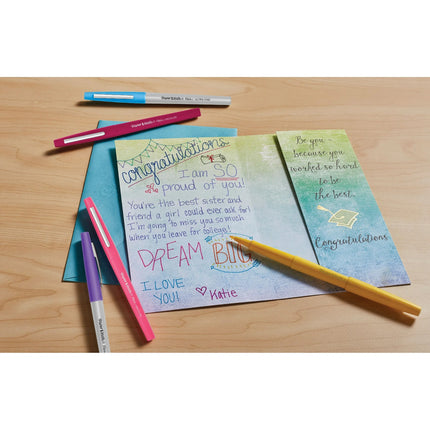 Paper Mate
congratulations
I am SO
proud of you!
You're the best sister and
friend a girl could ever ask for!
I'm going to miss you so much
when you leave for college!
DREAM BIG
I LOVE
YOU!
Katie
Be you
because you
worked so hard
to be
the best.
Congratulations